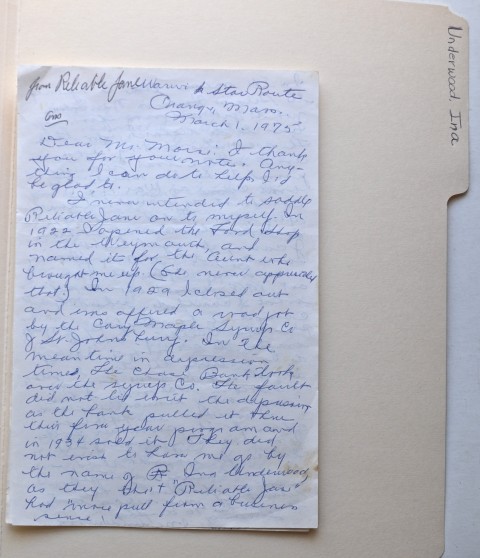 from Reliable Jane Warwick Star Route
Orange, Mass.
March 1, 1975
ans
Dear Ms. Morse: I thank
you for your note. Any-
thing I can do to help, I'd
be glad to.
I never intended to saddle
Reliable Jane on to myself. In
1922 I opened the Food Shop
in the Weymouth, and
named it for the Aunt who
brought me up. (She never approved
that) In 1929 I closed out
and was offered a road job
by the Cary Maple Syrup Co
of St. Johnsbury. In the
meantime in depression
times, the Chase Bank took
over the syrup Co. The fault
did not the depression
as the bank pulled it thru
their five year program and
in 1934 sold it. They did
not wish to have me go by
the name of Ina Underwood,
as they tho't "Reliable Jane"
had more pull from a business
sense.
Underwood, Ina